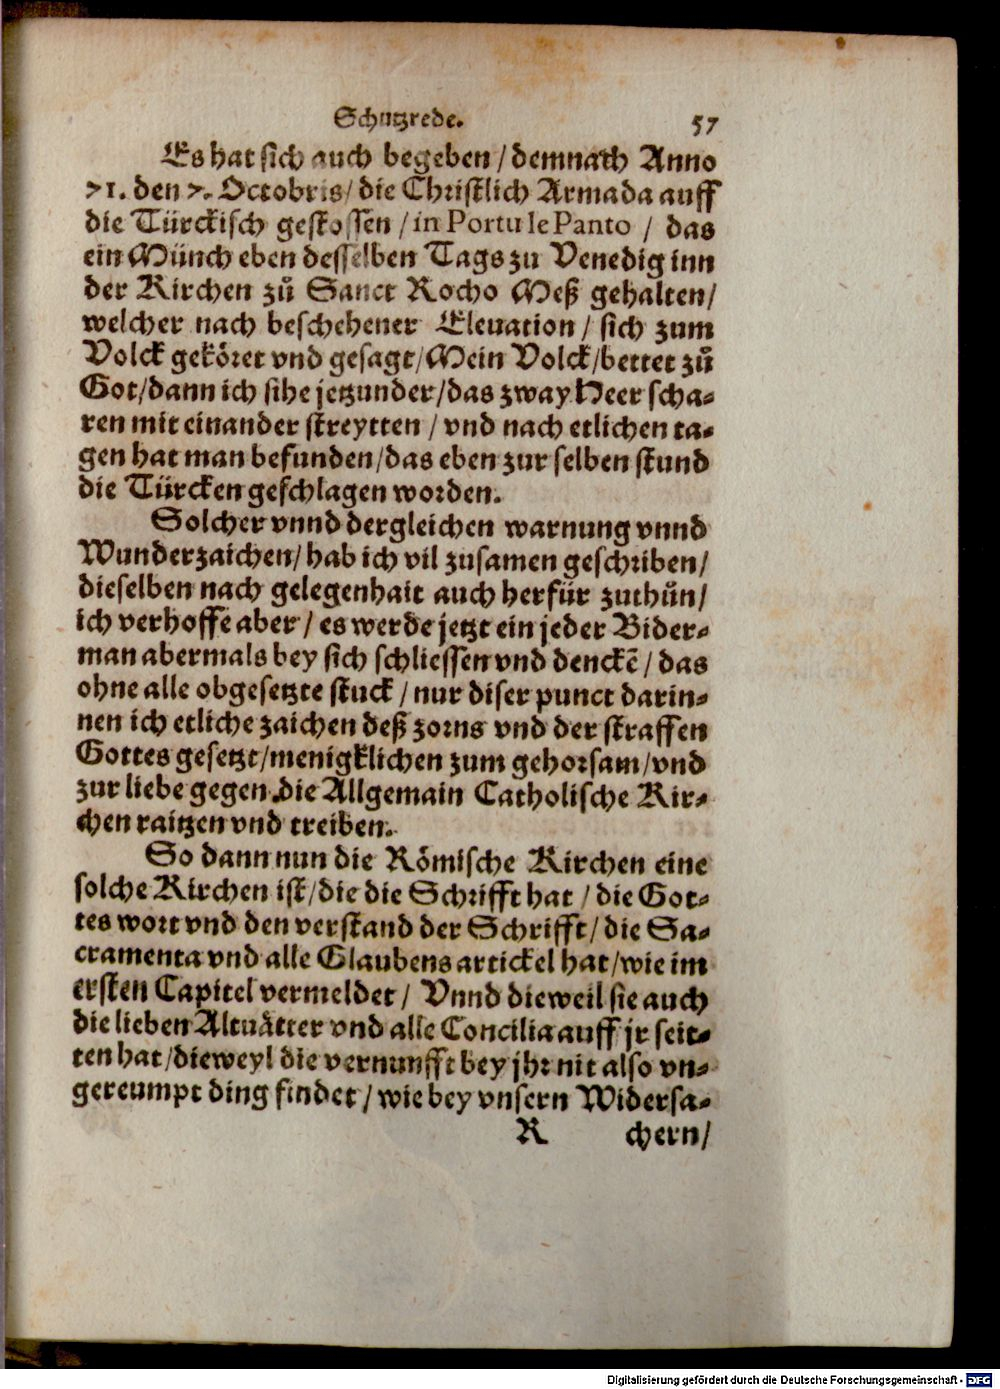 Schutzrede. 57
Es hat sich auch begeben / demnach Anno
71. den 7. Octobris / die Christlich Armada auff
die Türckisch gestossen / in Portu le Panto / das
ein Münch eben desselben Tags zu Venedig inn
der Kirchen zů Sanct Rocho Meß gehalten /
welcher nach beschehener Eleuation / sich zum
Volck geköret vnd gesagt / Mein Volck / bettet zů
Got / dann ich sihe jetzunder / das zway Heer scha-
ren mit einander streytten / vnd nach etlichen ta-
gen hat man befunden / das eben zur selben stund
die Türcken geschlagen worden.
Solcher vnnd dergleichen warnung vnnd
Wunderzaichen / hab ich vil zusamen geschriben /
dieselben nach gelegenhait auch herfür zuthůn /
ich verhoffe aber / es werde jetzt ein jeder Bider-
man abermals bey sich schliessen vnd denckē / das
ohne alle obgesetzte stuck / nur diser punct darin-
nen ich etliche zaichen deß zorns vnd der straffen
Gottes gesetzt / menigklichen zum gehorsam / vnd
zur liebe gegen die Allgemain Catholische Kir-
chen raitzen vnd treiben.
So dann nun die Römische Kirchen eine
solche Kirchen ist / die die Schrifft hat / die Got-
tes wort vnd den verstand der Schrifft / die Sa-
cramenta vnd alle Glaubens artickel hat / wie im
ersten Capitel vermeldet / Vnnd dieweil sie auch
die lieben Altuätter vnd alle Concilia auff jr seit-
ten hat / dieweyl die vernunfft bey jhr nit also vn-
gereumpt ding findet / wie bey vnsern Widersa-
R chern /
Digitalisierung gefördert durch die Deutsche Forschungsgemeinschaft - DFG